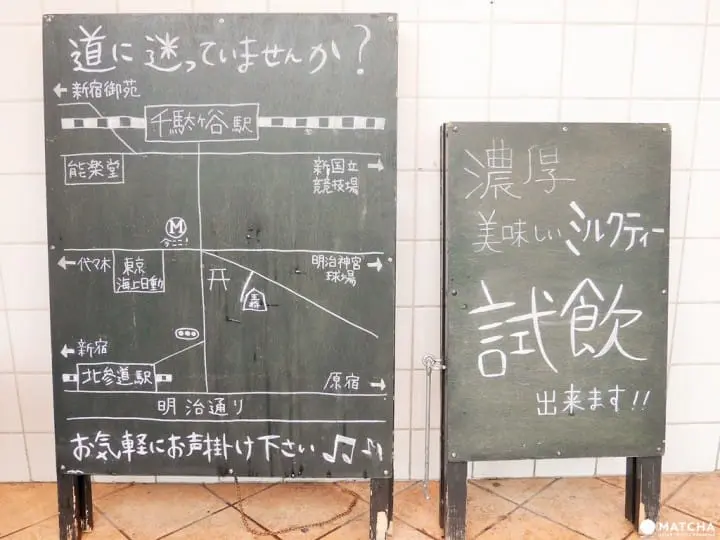 道に迷っていませんか?
←新宿御苑
千駄ヶ谷駅
能楽堂
新国立
競技場→
M
今ここ!
←代々木
東京
海上日動
明治神宮
球場→
←新宿
北参道駅
原宿→
明治通り
お気軽にお声掛け下さい♫♪
濃厚
美味しいミルクティー
試飲
出来ます!!
MATCHA